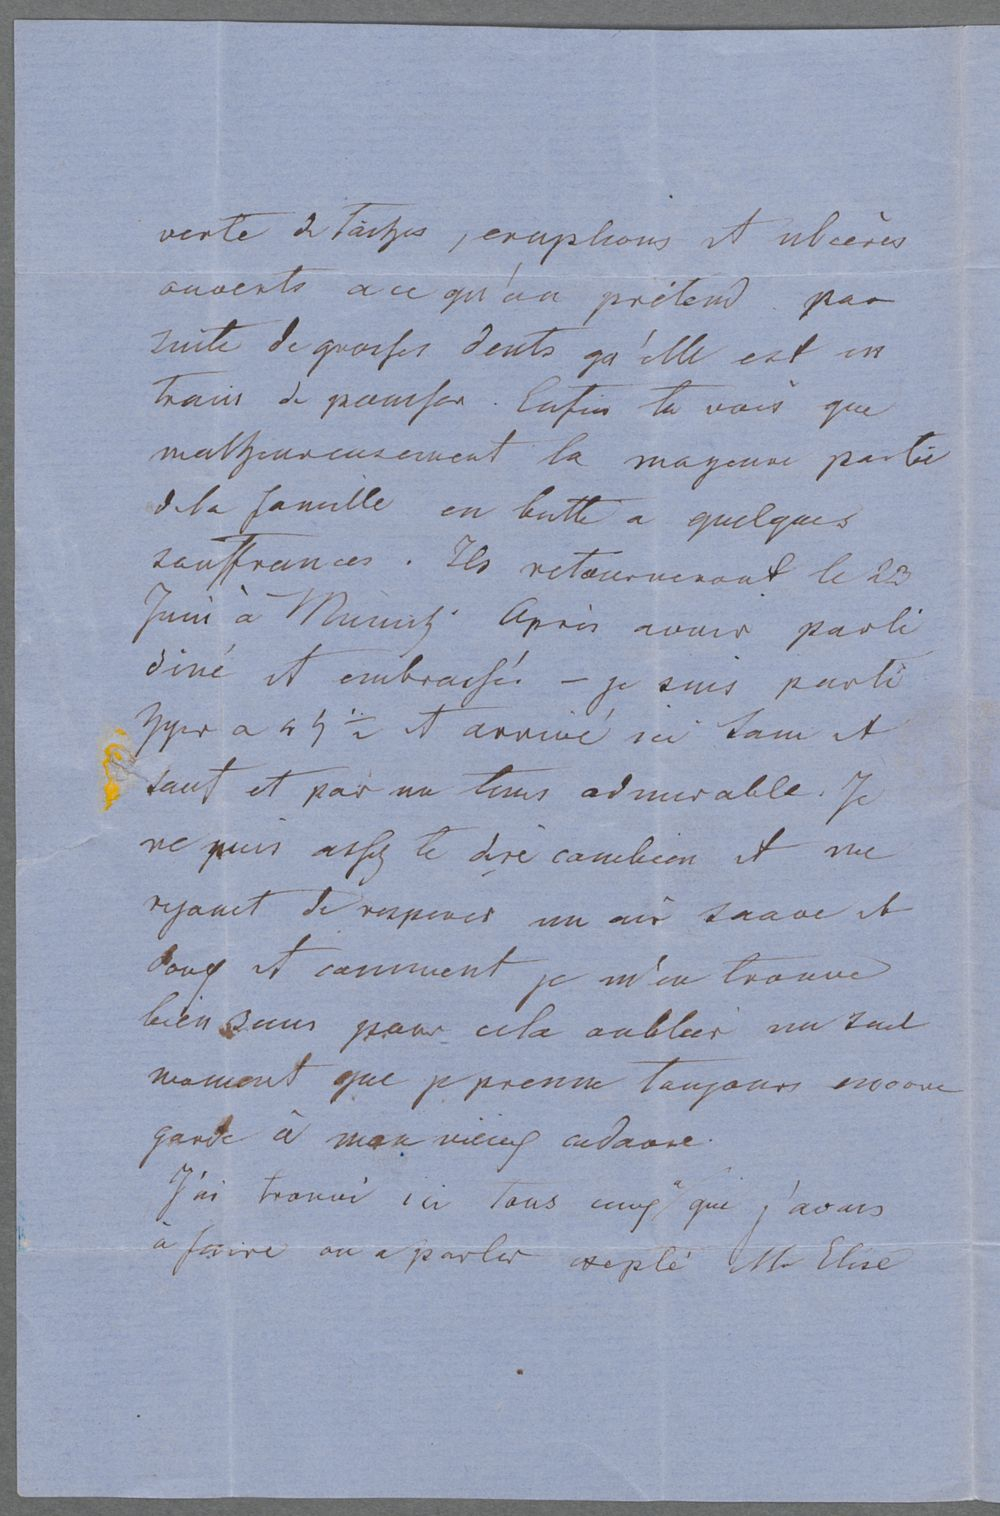 verte de tâches, eruptions et ulcères
ouverts a ce qu'on prétend par
suite de grosses dents qu'elle est en
train de pousser. Enfin tu vois que
malheureusement la mayeure partie
de la famille en butte a quelques
souffrances. Ils retourneront le 23
Juin à Munich. Après avoir parlé
diné et embrassé. — je suis parti
hyer a 4 h ½ et arrivé ici sain et
sauf et par un tems admirable. Je
ne puis assez te dire combien et me
rejouet de respirer un air suave et
doux et comment je m'en trouve
bien sans pour cela oublier un seul
moment que je prenne toujours encore
garde à mon vieux cadavre.
J'ai trouvé ici tous ceux à que j'avais
à faire ou a parler exepté Me Elise